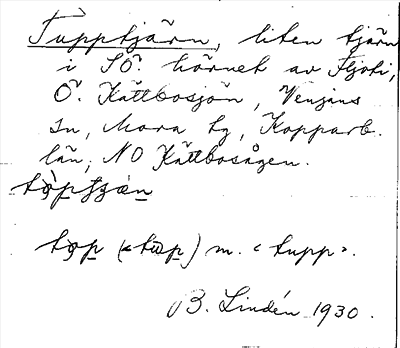 Tupptjärn, liten tjärn
i SÖ hörnet av
Ö. Kättbosjön, Venjans
sn, Mora tg, Kopparb.
län, NO Kättbosågen.
m. "tupp".
B. Lindén 1930.